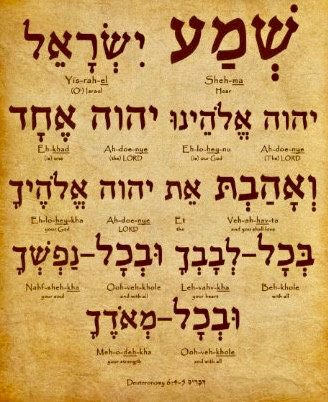 שְׁמַע יִשְׂרָאֵל
Yis-rah-el Sheh-ma
(O') Israel Hear
יהוה אֱלֹהֵינוּ יהוה אֶחָד
Eh-khad Ah-doe-nye Eh-lo-hey-nu Ah-doe-nye
(is) one (the) LORD (is) our God (The) LORD
וְאָהַבְתָּ אֵת יהוה אֱלֹהֶיךָ
Eh-lo-hey-kha Ah-doe-nye Et Veh-ah-hav-ta
your God LORD the and you shall love
בְּכָל-לְבָבְךָ וּבְכָל-נַפְשְׁךָ
Nahf-sheh-kha Ooh-veh-khole Leh-vahv-kha Beh-khole
your soul and with all your heart with all
וּבְכָל-מְאֹדֶךָ
Meh-o-deh-kha Ooh-veh-khole
your strength and with all
Deuteronomy 6:4-5 דברים